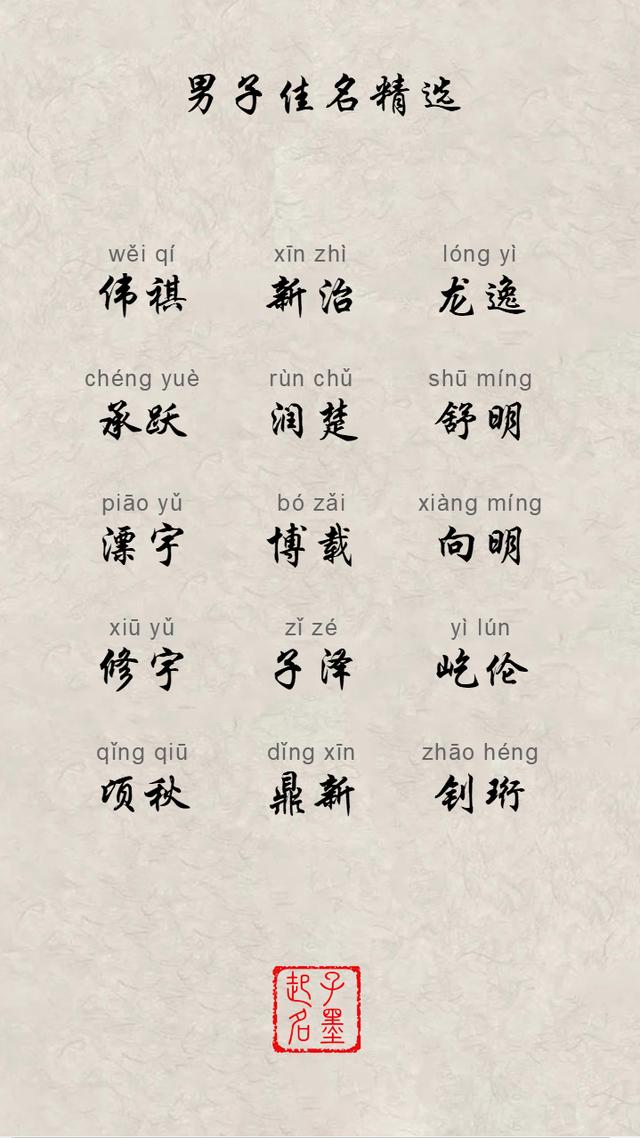 男子佳名精选
wěi qí xīn zhì lóng yì
伟祺 新治 龙逸
chéng yuè rùn chǔ shū míng
承跃 润楚 舒明
piāo yǔ bó zǎi xiàng míng
漂宇 博载 向明
xiū yǔ zǐ zé yì lún
修宇 子泽 屹伦
qǐng qiū dǐng xīn zhāo héng
顷秋 鼎新 钊珩
子墨
起名